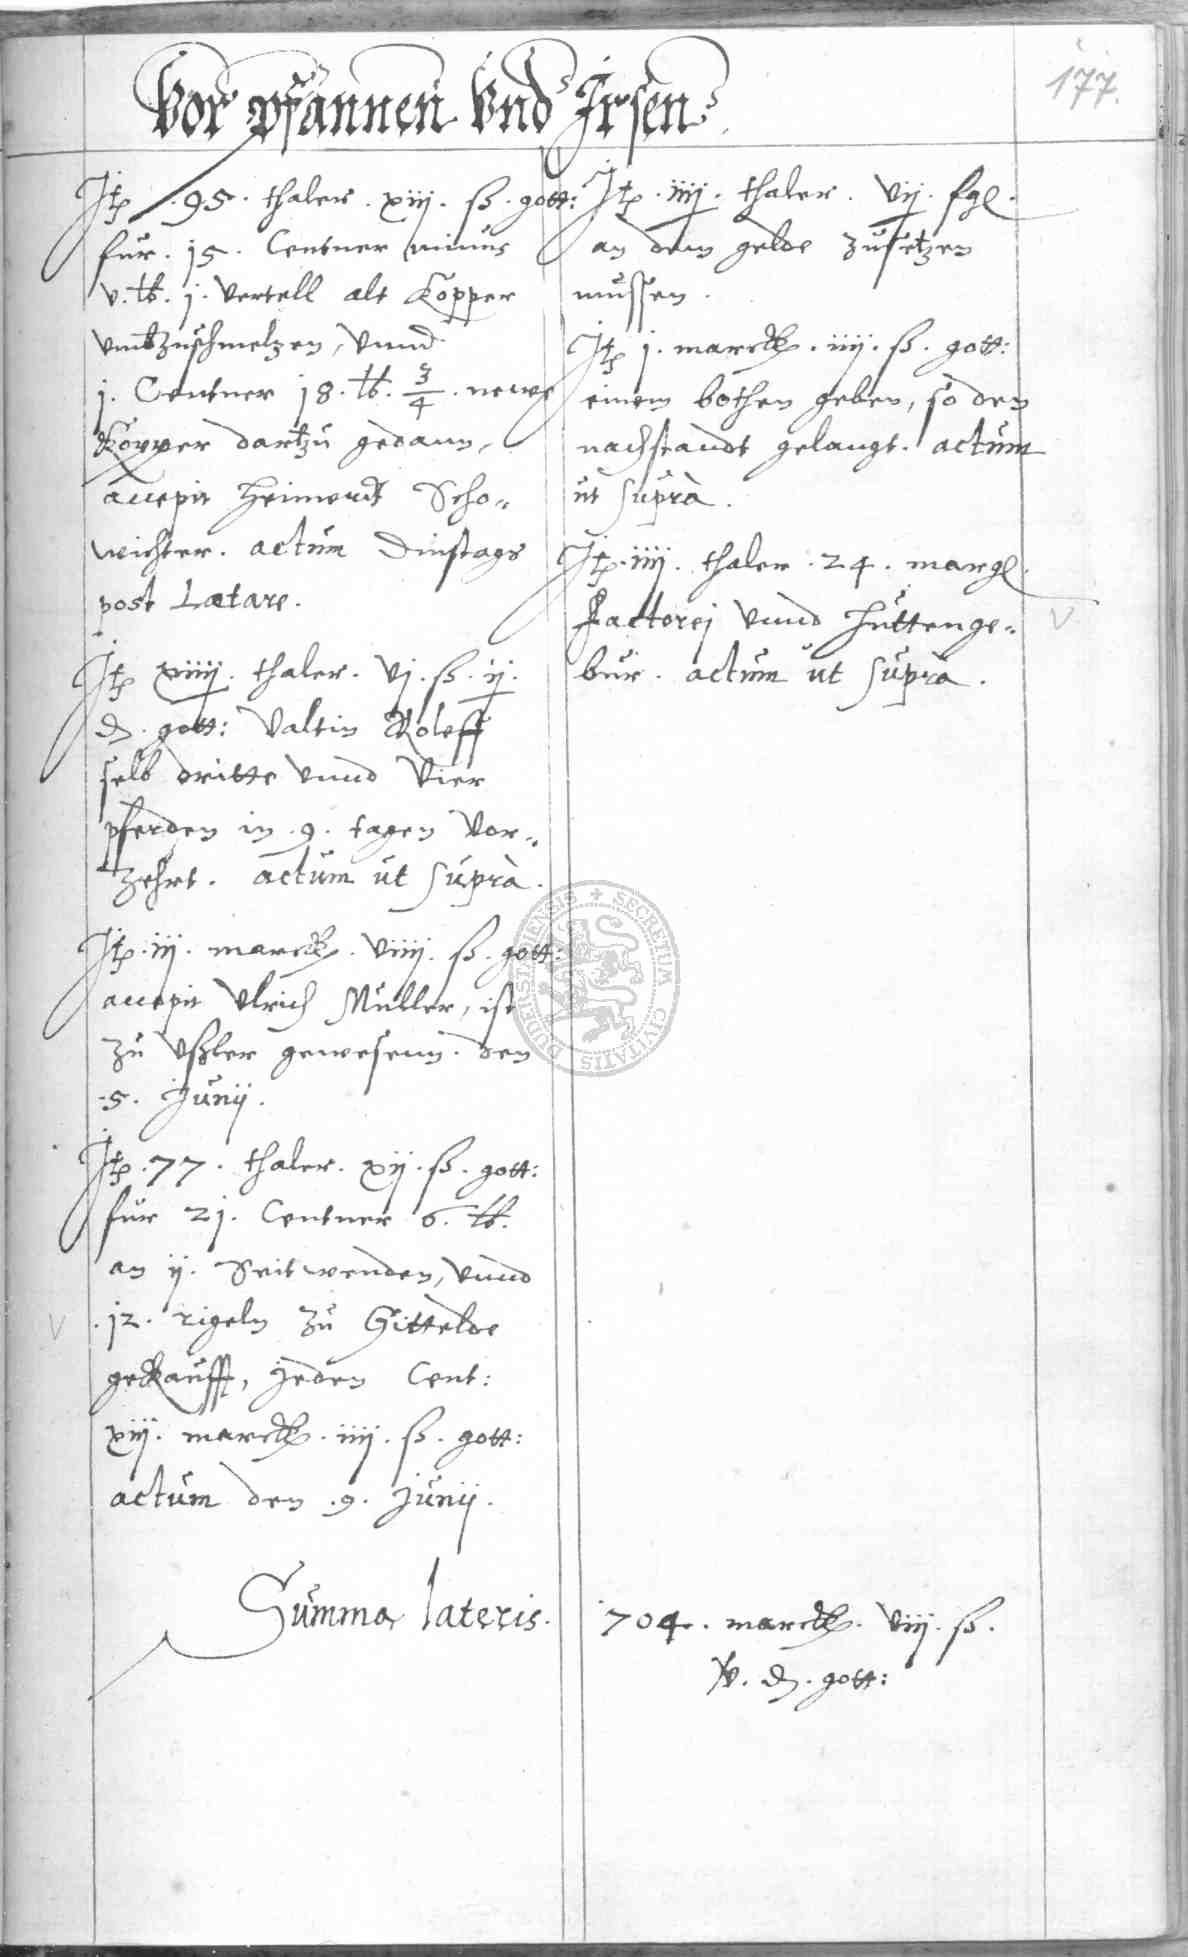 177.
Vor pfannen Vnd Irsen
Itp .95. thaler. xiij. ß. gott:
fur .15. Centner minus
v. lb. j. vertell alt Kopper
vmbzuschmelzen, vnnd
j. Centner 18. lb. 3/4. newe
Kopper dartzu gedaan,
accepit Heimert Scho-
wichter. actum Dinstags
post Laetare.
Itp xiiij. thaler. vj. ß. ij.
d. gott: Valtin Roleff
selb dritte vnnd vier
pferden in .9. tagen vor-
zehrt. actum ut supra.
Itp .iij. marck. viiij. ß. gott:
accepit Vlrich Muller, ist
zu Vßler gewesenn. den
.5. Junij.
Itp .77. thaler. xij. ß. gott:
fur 21. Centner 6. lb.
an ij. Seitwenden, vnnd
.12. rigeln zu Gittelde
gekaufft, jeden Cent:
xiij. marck. iiij. ß. gott:
actum den .9. Junij.
Itp .iiij. thaler. vij. fgl.
an dem gelde zusetzen
mussen.
Itp j. marck. iiij. ß. gott:
einem bothen geben, so den
nachstandt gelangt. actum
ut supra.
Itp .iiij. thaler .24. margl.
Factorej vnnd Huttenge-
bur. actum ut supra.
Summa lateris. 704. marck. viij. ß.
v. d. gott:
SECRETUM CIVITATIS DUDERSTADIENSIS